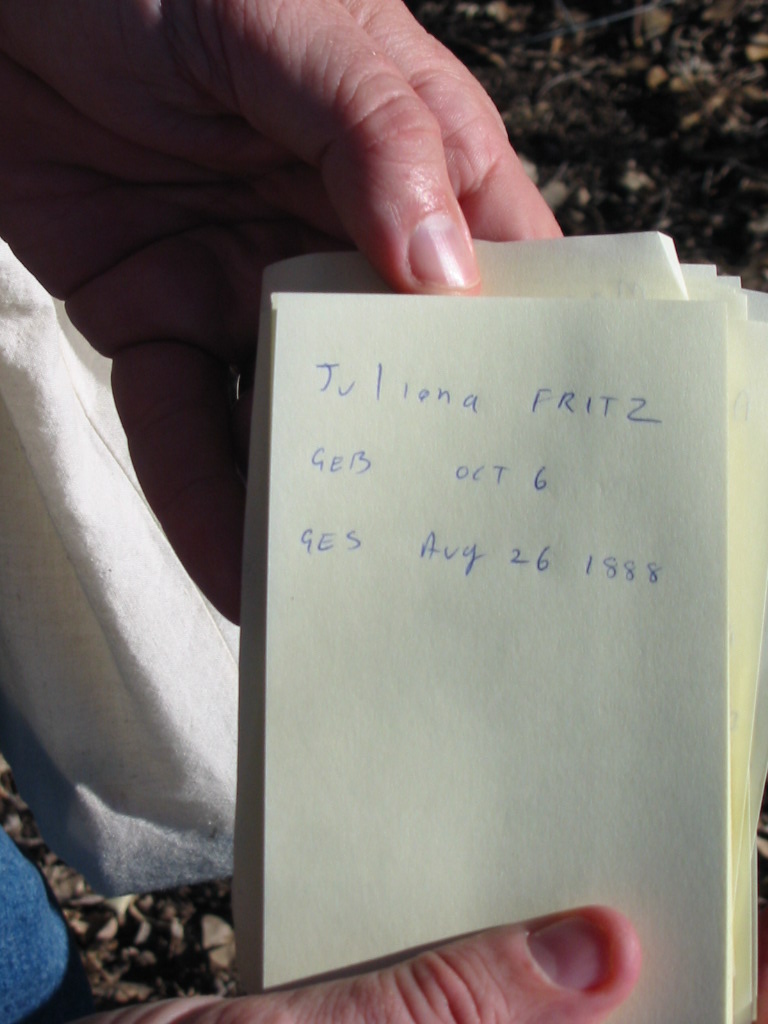 Juliana FRITZ
GEB OCT 6
GES Aug 26 1888